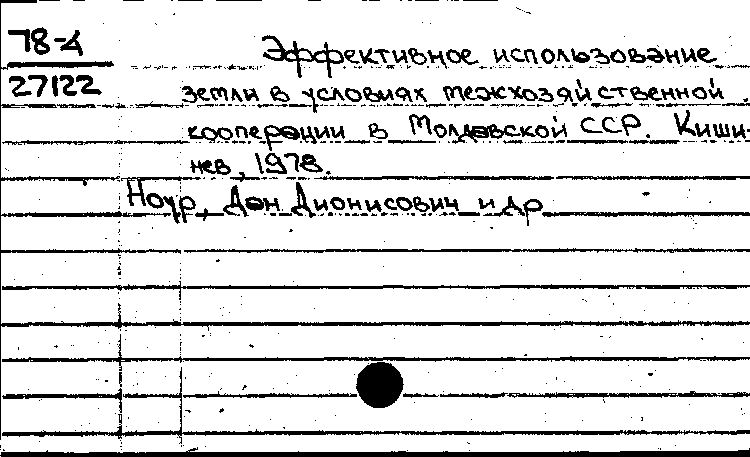 78-4
27122
Эффективное использование
земли в условиях межхозяйственной
кооперации в Молдавской ССР. Киши-
нев, 1978.
Ноур, Дан Дионисович и др